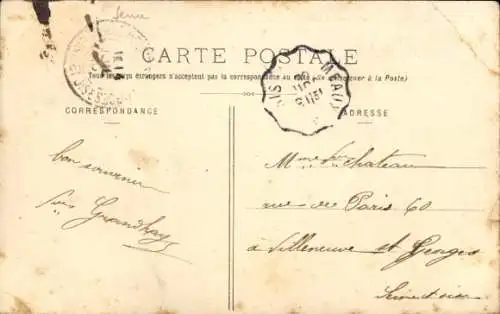 CARTE POSTALE
Tous les pays étrangers n'acceptent pas la correspondance au recto (Se renseigner à la Poste)
CORRESPONDANCE
ADRESSE
bon souvenir
Mme Chateau
rue de Paris 60
à Villeneuve st Georges
Seine et oise